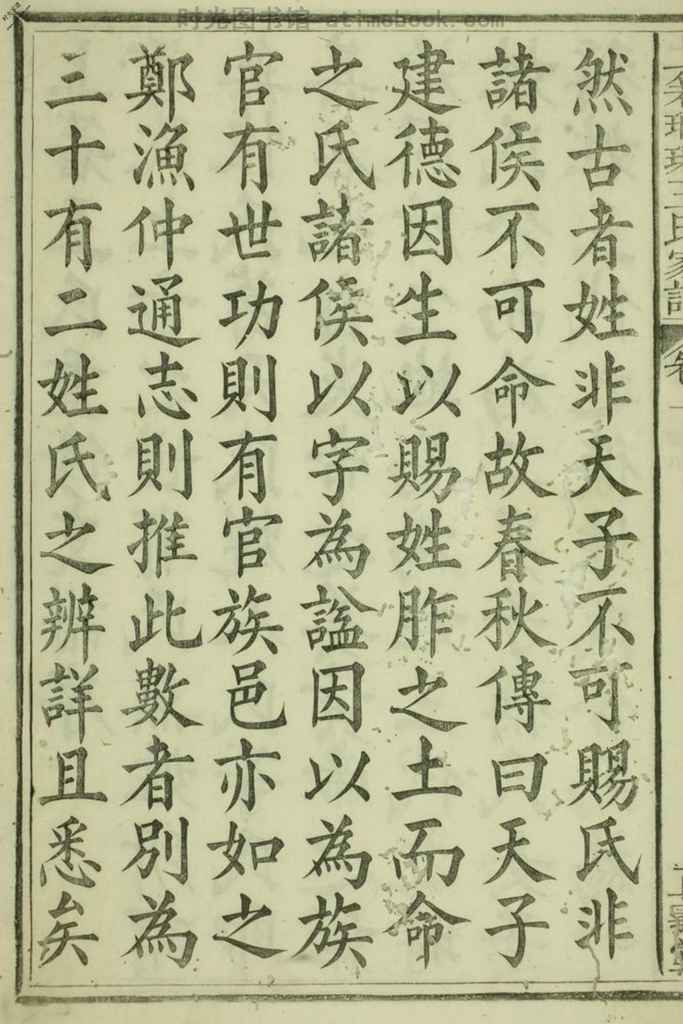 时光图书馆 - atimebook.com
然古者姓非天子不可賜氏非
諸侯不可命故春秋傳曰天子
建德因生以賜姓胙之土而命
之氏諸侯以字為諡因以為族
官有世功則有官族邑亦如之
鄭漁仲通志則推此數者別為
三十有二姓氏之辨詳且悉矣